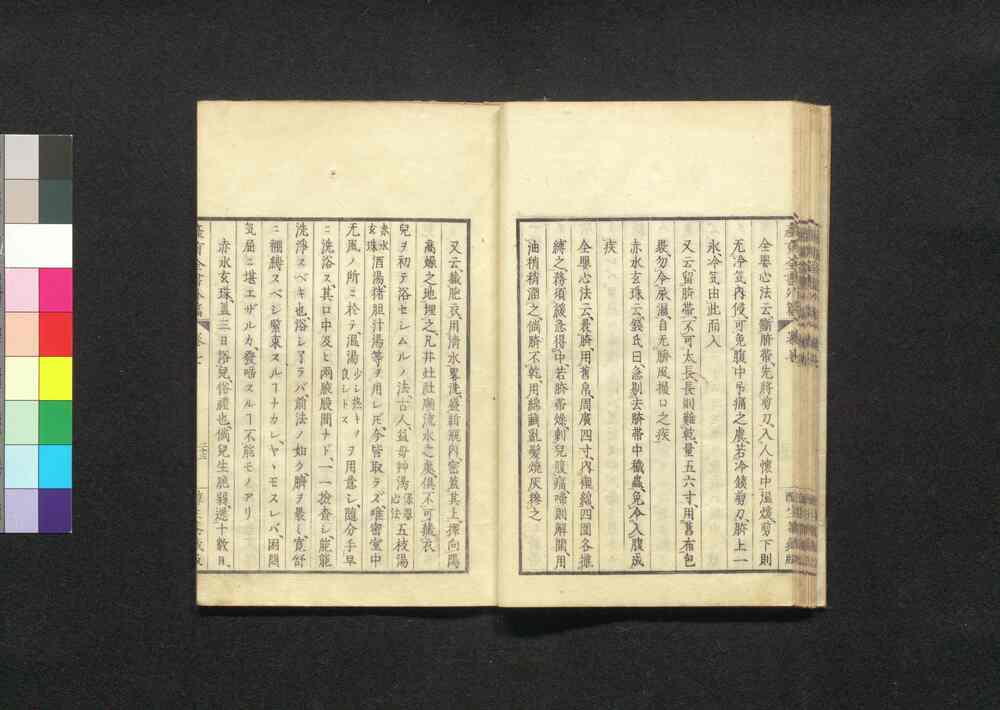 全嬰心法云、斷臍帶、先將剪刀、入人懷中溫煖、剪下則
无冷氣內侵、可免腹中吊痛之患、若冷鐵剪刀、臍上一
水冷氣由此而入
又云、留臍帶、不可太長、長則難乾、量五六寸、用舊布包
裹、勿令尿濕、自无臍風撮口之疾
赤水玄珠云、錢氏曰、急剔去臍帶中穢蟲、免令入腹成
疾
全嬰心法云、裹臍、用舊帛、周廣四寸、內
縛之、務須緩急得中、若臍帶燥、刺兒腹痛啼、則解開、用
油稍稍潤之、倘臍不乾、用綿
又云、藏肥衣、用清水、畧洗、盛新瓶內、密蓋其上、擇向陽
高燥之地埋之、凡井灶社廟流水之處、俱不可藏衣
兒ヲ初テ浴セシムルノ法、古人、益母艸湯 五枝湯
赤水玄珠 酒湯、猪胆汁湯等ヲ用レドモ、今皆取ラズ、唯密室中
无風ノ所ニ於テ、溫湯 少シ熱キヲ良シトス ヲ用意シ、隨分手早
ニ洗浴ス、其口中及ヒ兩腋股間ナド、一一撿査シ、能能
洗淨スベキ也、浴シ了ラバ、前法ノ如ク、臍ヲ裹シ、寬舒
ニ綑縛スベシ、緊束スルヿナカレ、ヤヽモスレバ、困悶
氣屈ニ堪エザルカ、發啼スルヿ不能モノアリ
赤水玄珠、蓋三日浴兒、俗禮也、倘兒生脆弱、遲十數日、